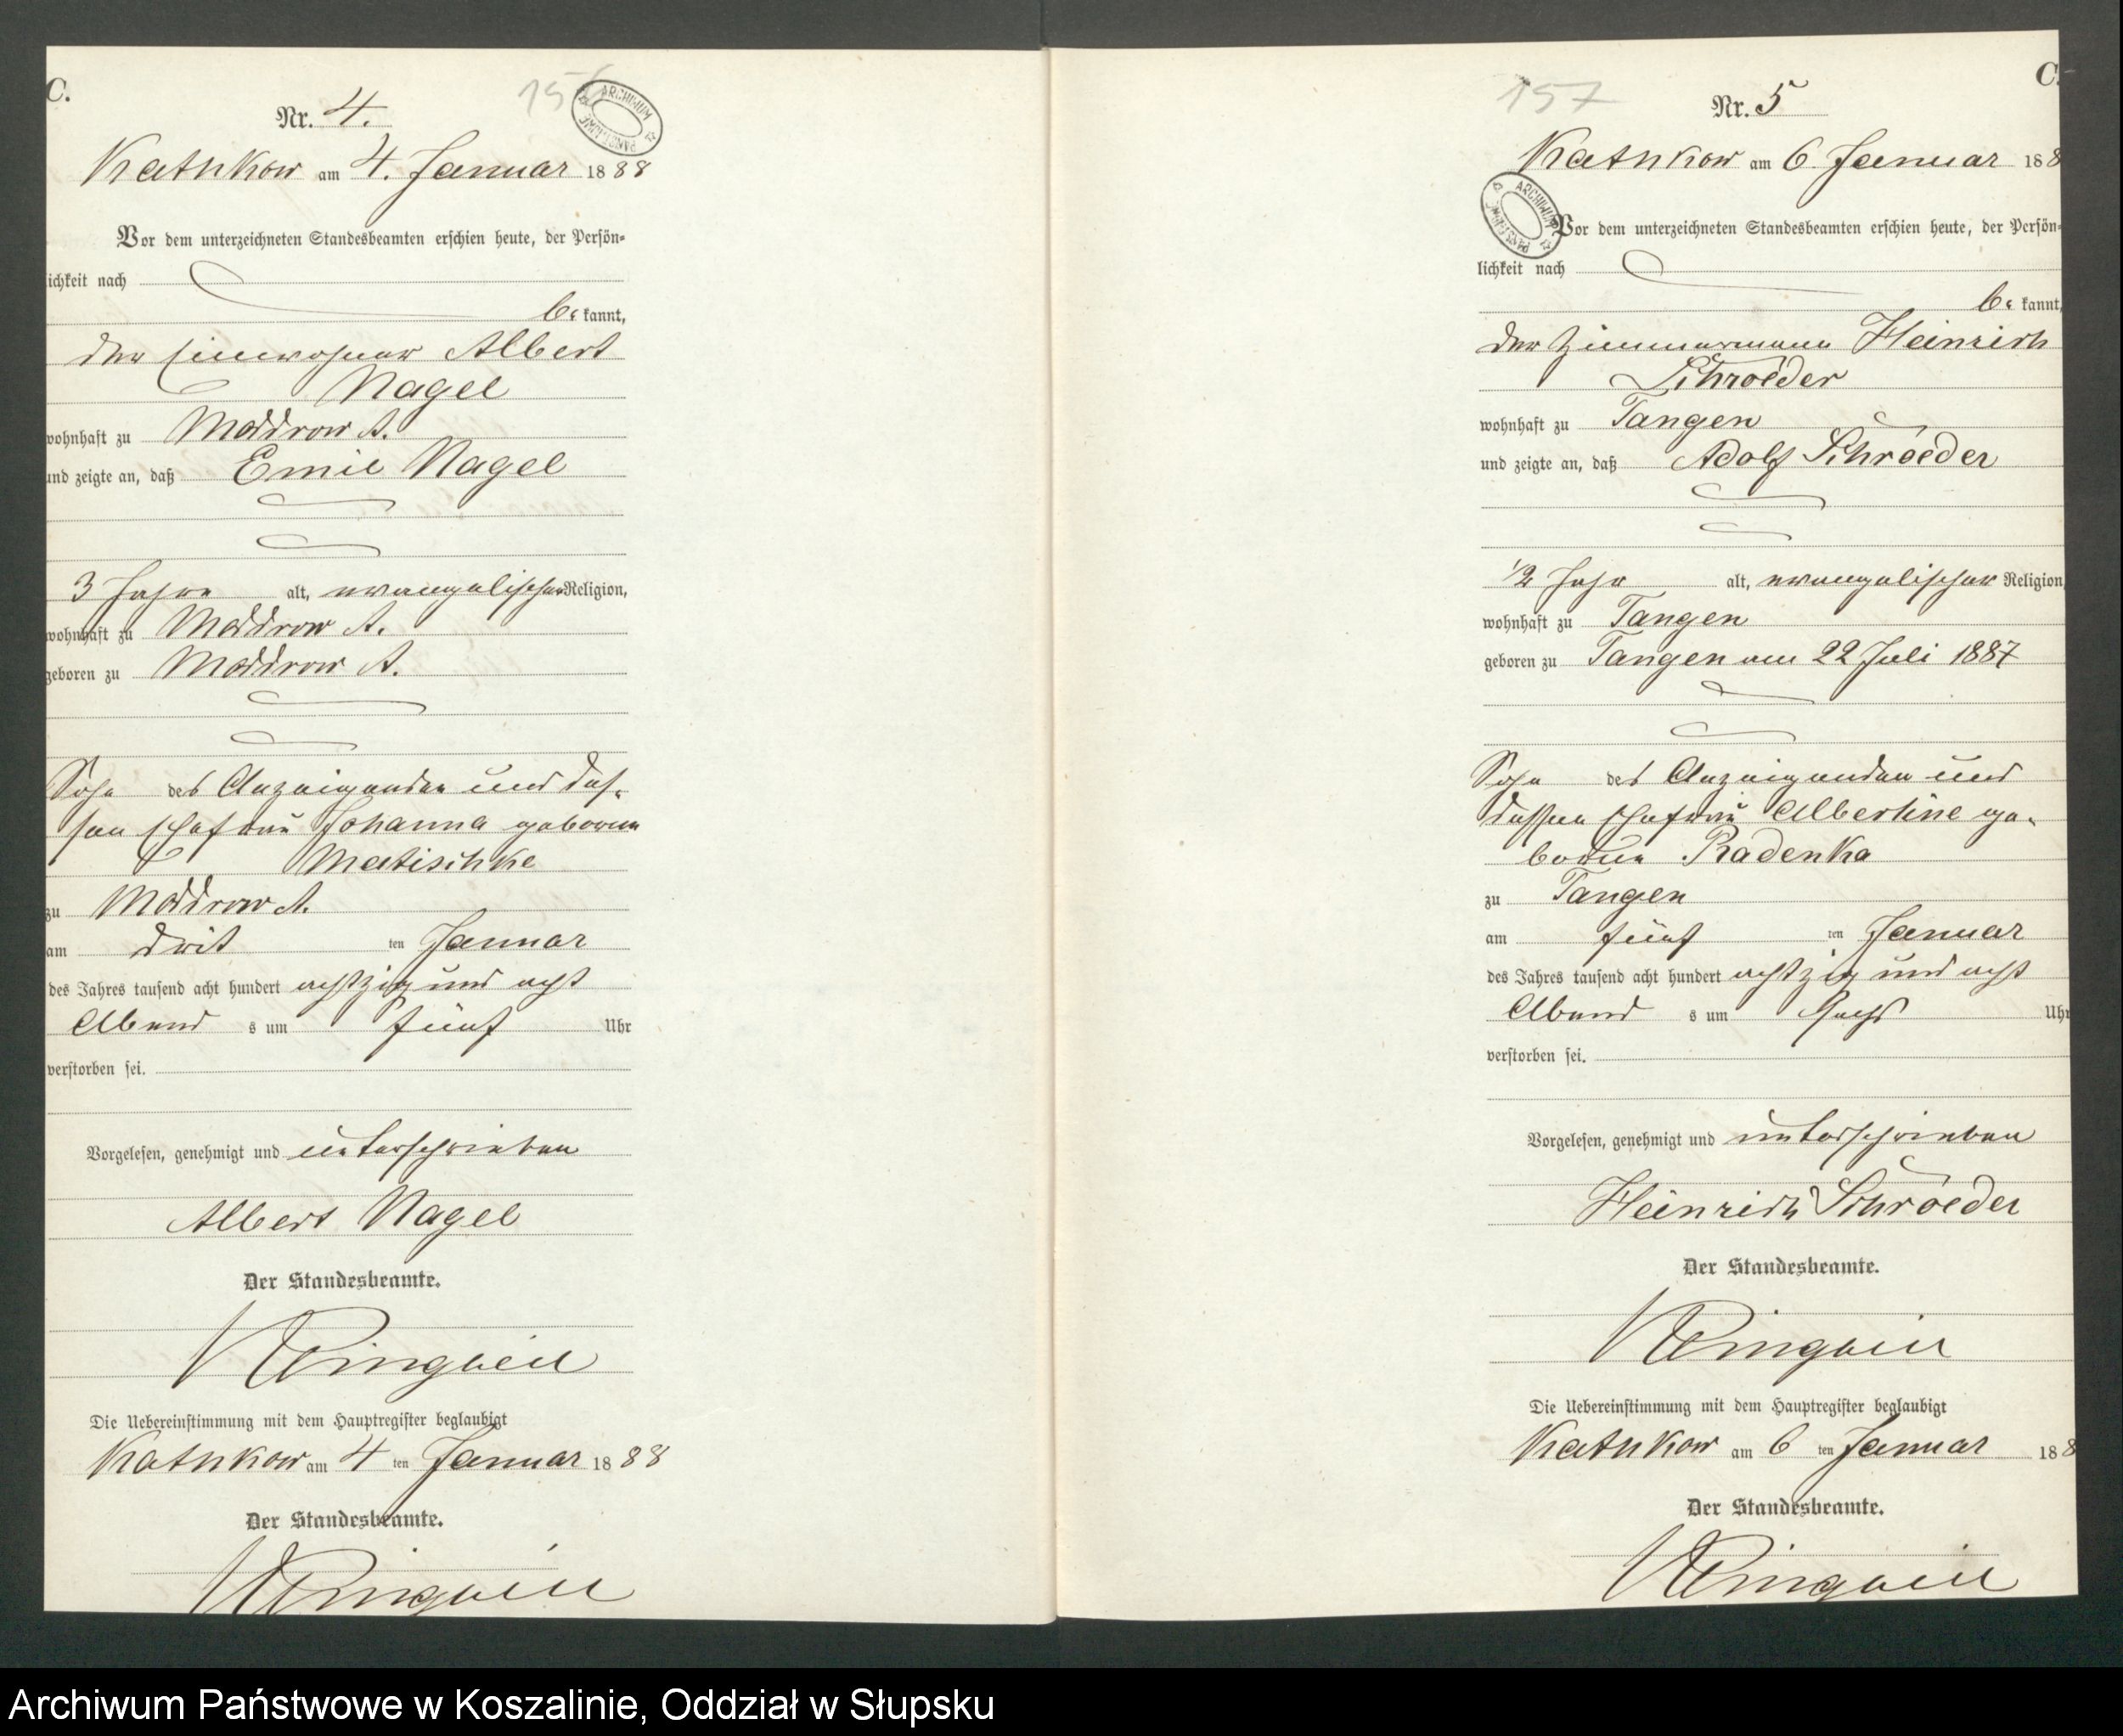 C.
Nr. 4.
156
ARCHIWUM PAŃSTWOWE
Kathkow am 4. Januar 1888
Vor dem unterzeichneten Standesbeamten erschien heute, der Persön-
lichkeit nach
be kannt,
der Einwohner Albert
Nagel
wohnhaft zu Moddrow A.
und zeigte an, daß Emil Nagel
3 Jahre alt, evangelischer Religion,
wohnhaft zu Moddrow A.
geboren zu Moddrow A.
Sohn des Anzeigenden und des-
sen Ehefrau Johanna geborene
Matischke
zu Moddrow A.
am drit ten Januar
des Jahres tausend acht hundert achtzig und acht
Abend s um fünf Uhr
verstorben sei.
Vorgelesen, genehmigt und unterschrieben
Albert Nagel
Der Standesbeamte.
Die Uebereinstimmung mit dem Hauptregister beglaubigt
Kathkow am 4 ten Januar 1888
Der Standesbeamte.
C.
157
Nr. 5
Kathkow am 6 Januar 188
ARCHIWUM PAŃSTWOWE
Vor dem unterzeichneten Standesbeamten erschien heute, der Persön-
lichkeit nach
be kannt,
der Zimmermann Heinrich
Schroeder
wohnhaft zu Tangen
und zeigte an, daß Adolf Schroeder
1/2 Jahr alt, evangelischer Religion
wohnhaft zu Tangen
geboren zu Tangen am 22 Juli 1887
Sohn des Anzeigenden und
dessen Ehefrau Albertine ge-
borene Radenka
zu Tangen
am fünf ten Januar
des Jahres tausend acht hundert achtzig und acht
Abend s um sechs Uhr
verstorben sei.
Vorgelesen, genehmigt und unterschrieben
Heinrich Schroeder
Der Standesbeamte.
Die Uebereinstimmung mit dem Hauptregister beglaubigt
Kathkow am 6 ten Januar 188
Der Standesbeamte.
Archiwum Państwowe w Koszalinie, Oddział w Słupsku